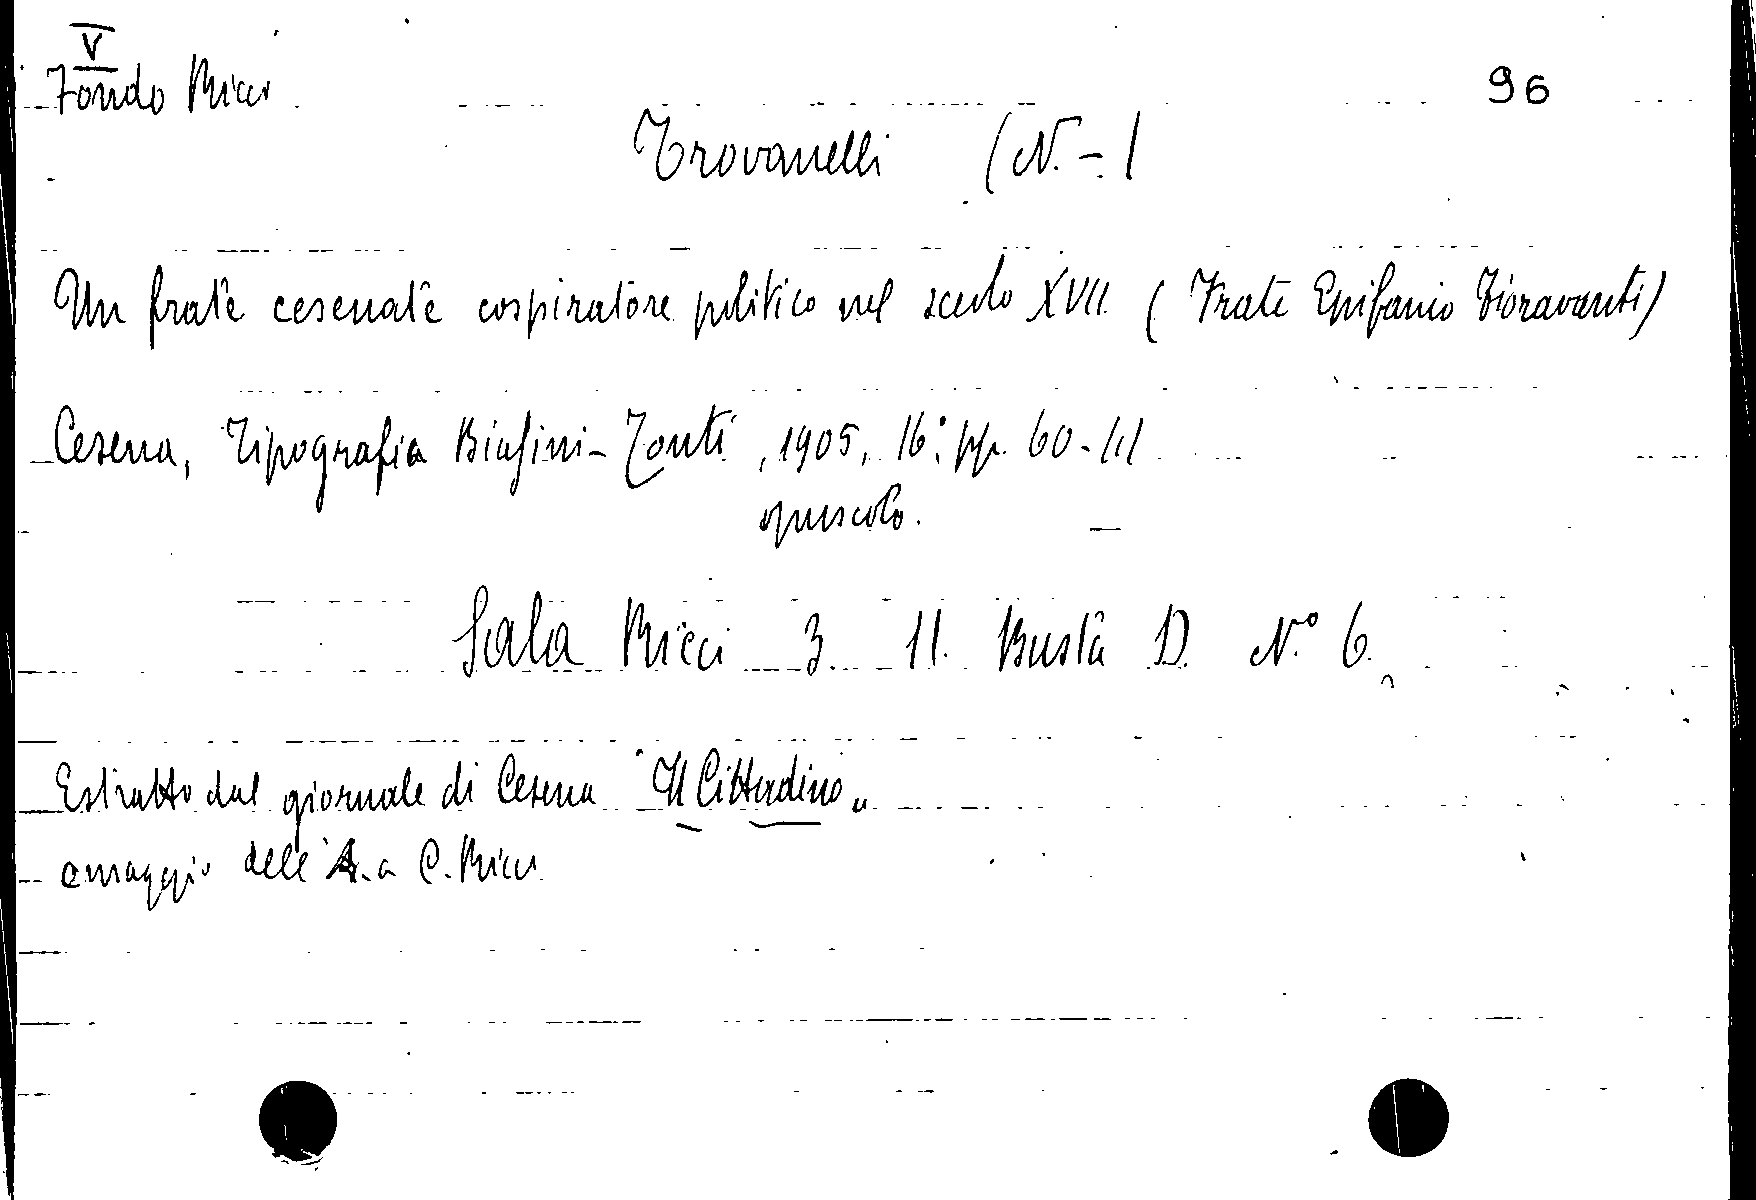 V
Fondo Ricci
96
Trovanelli (N.-)
Un frate cesenate cospiratore politico nel secolo XVII (Frate Epifanio Fioravanti)
Cesena, Tipografia Biasini-Tonti, 1905, 16° pp. 60-III
opuscolo.
Sala Ricci 3. 11. Busta D. N° 6.
Estratto dal giornale di Cesena "Il Cittadino"
omaggio dell'A. a C. Ricci